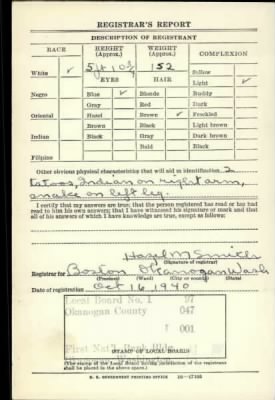 REGISTRAR'S REPORT
DESCRIPTION OF REGISTRANT
RACE HEIGHT (Approx.) WEIGHT (Approx.) COMPLEXION
White ✓ 5 ft 10 152 Sallow
EYES HAIR Light ✓
Negro Blue ✓ Blonde Ruddy
Gray Red Dark
Oriental Hazel Brown ✓ Freckled
Brown Black Light brown
Indian Black Gray Dark brown
Bald Black
Filipino
Other obvious physical characteristics that will aid in identification 2
tatoos, Indian on right arm,
snake on left leg.
I certify that my answers are true; that the person registered has read or has had
read to him his own answers; that I have witnessed his signature or mark and that
all of his answers of which I have knowledge are true, except as follows:
Hazel M Smith
(Signature of registrar)
Registrar for Boston Okanogan Wash
(Precinct) (Ward) (City or county) (State)
Date of registration Oct 16, 1940
Local Board No. 1 97
Okanogan County 047
001
First Nat'l Bank Bldg.
STAMP OF LOCAL BOARD
(The stamp of the Local Board having jurisdiction of the registrant
shall be placed in the above space.)
U. S. GOVERNMENT PRINTING OFFICE 16—17105